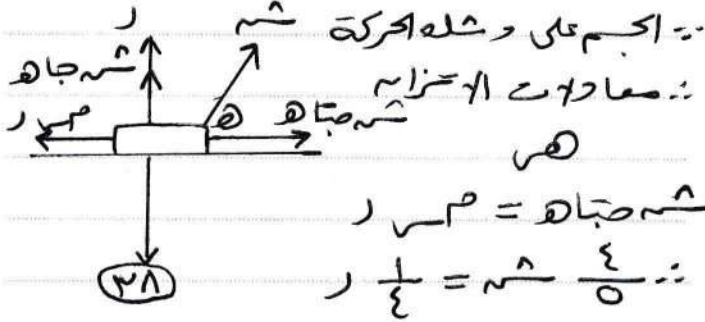 ∵ الجسم على وشك الحركة
∴ معادلات الاتزان
هى
شـ جتاهـ = مـس ر
∴ ٤/٥ شـ = ١/٤ ر
ر
شـ
شـ جاهـ
هـ
مـس ر
شـ جتاهـ
٣٨